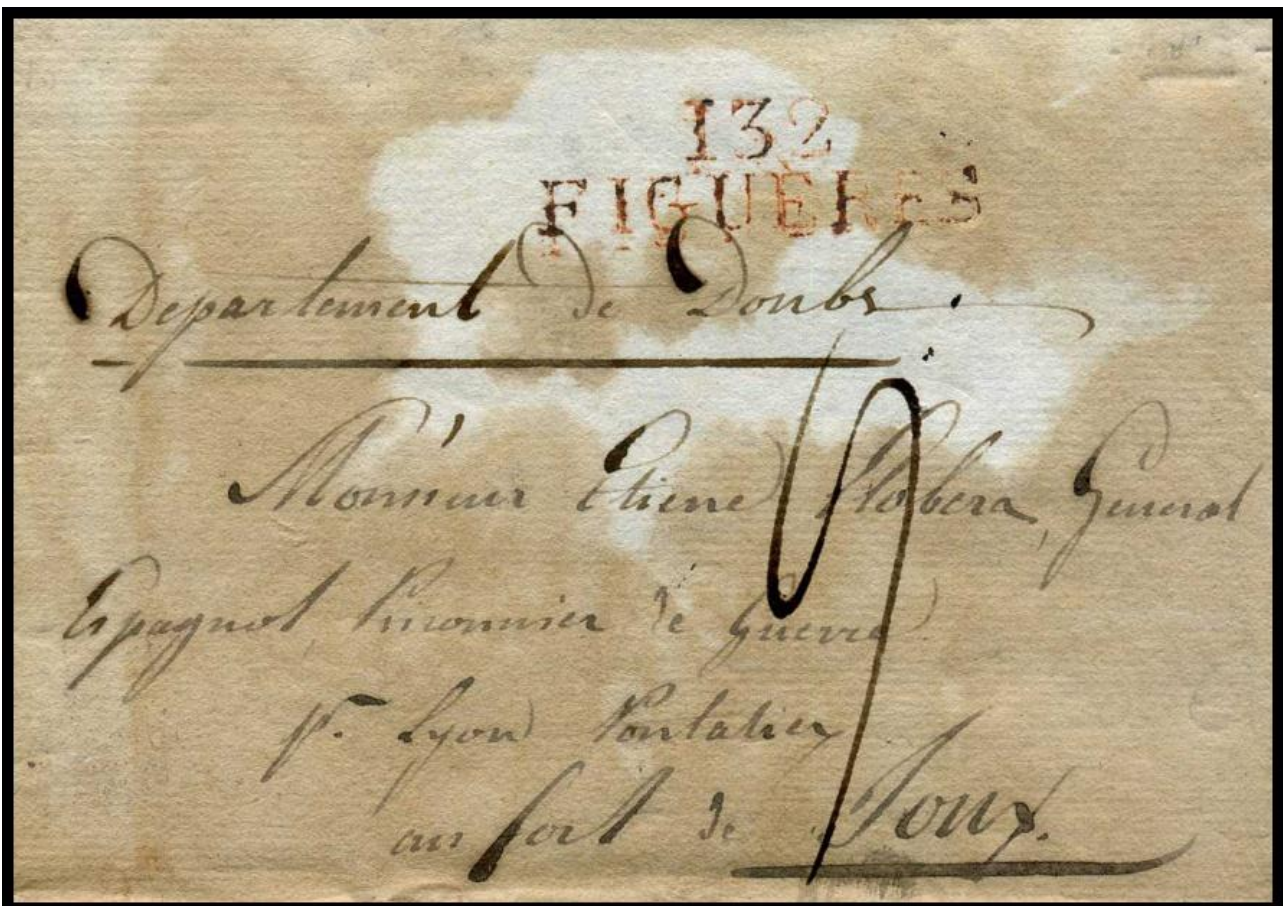 132
FIGUÈRES
Departement de Doubs.
Monsieur Etiene Llobera, General
Espagnol, Prisonnier de Guerre
pr. Lyon Pontalier
au fort de Joux.